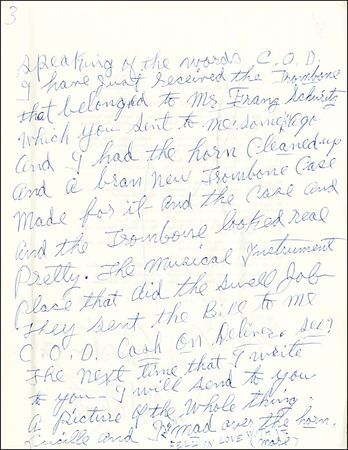 3
Speaking of the words, C.O.D.
I have just received the Trombone
that belonged to Mr. Franz Schuritz
Which you sent to me sometime ago
And I had the horn Cleaned up
And a bran New Trombone Case
Made for it and the Case and
and the Trombone looked real
Pretty. The Musical Instrument
Place that did the swell Job
They sent the Bill to me
C.O.D. Cash On Deliver. See?
The Next time that I write
to you - I will send to you
A Picture of the Whole thing.
Lucille and I mad over the horn.
FELL IN LOVE (more)